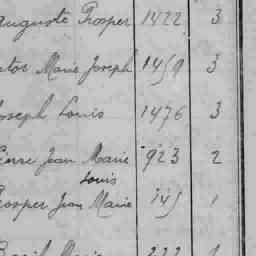 Auguste Prosper 1422 3
Marie Joseph 1459 3
Joseph Louis 1476 3
Pierre Jean Marie 923 2
Louis
Prosper Jean Marie 145 1
Marie 222